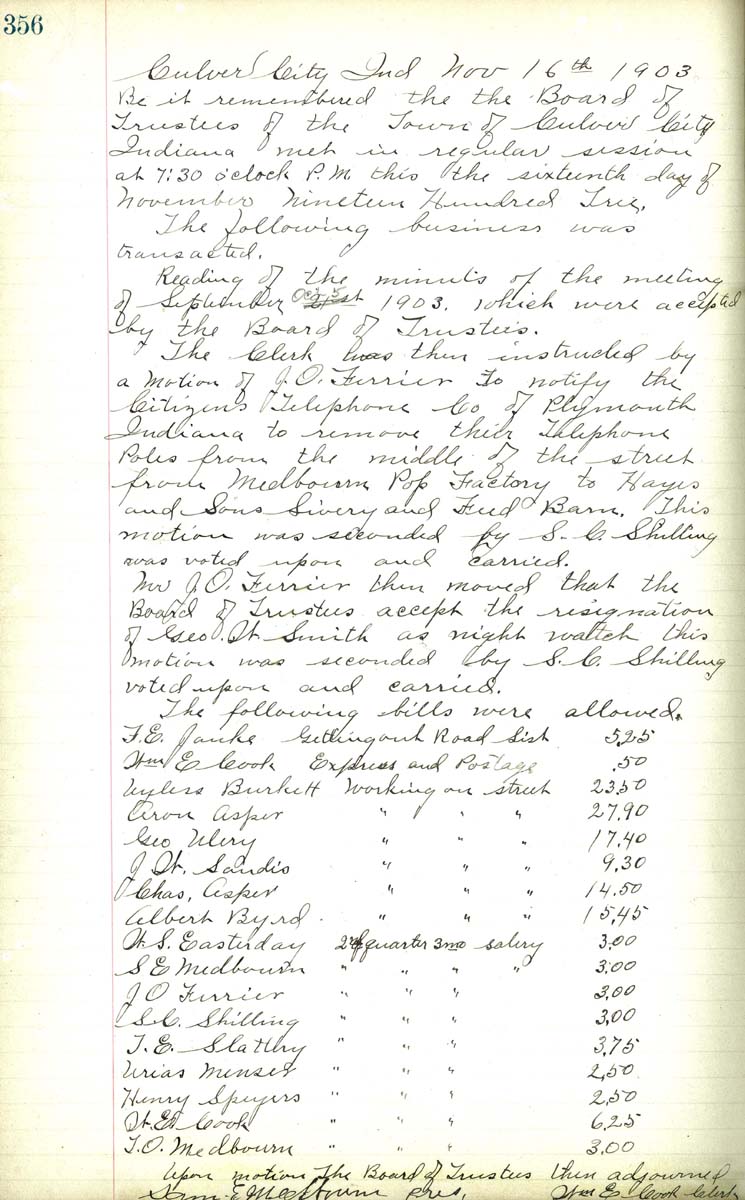 356
Culver City Ind Nov 16th 1903
Be it remembered the the Board of
Trustees of the Town of Culver City
Indiana met in regular session
at 7:30 o'clock P.M. this the sixteenth day of
November Nineteen Hundred Tree.
The following business was
transacted.
Reading of the minuts of the meeting
of September Oct 5 21st 1903. which were accepted
by the Board of Trustees.
The Clerk was then instructed by
a motion of J.O. Ferrier To notify the
Citizens Telephone Co of Plymouth
Indiana to remove their Telephone
Poles from the middle of the street
from Medbourn Pop Factory to Hayes
and Sons Livery and Feed Barn. This
motion was seconded by S. C Shilling
was voted upon and carried.
Mr J.O. Ferrier then moved that the
Board of Trustees accept the resignation
of Geo. W. Smith as night waltch this
motion was seconded by S.C. Shilling
voted upon and carried.
The following bills were allowed.
F.E. Getting out Road List 5.25
Wm E Cook Express and Postage .50
Uyless Burkett Working on street 23.50
Aron Asper " " " 27.90
Geo Ulery " " " 17.40
J W. Landis " " " 9.30
Chas. Asper " " " 14.50
Albert Byrd " " " 15.45
W.S. Easterday quarter 3mo salery 3.00
S E Medbourn " " " " 3.00
J O Ferrier " " " 3.00
S.C. Shilling " " " 3.00
T.E. Slattery " " " 3.75
Urias Menser " " " 2.50
Henry Speyers " " " 2.50
W.E. Cook " " " 6.25
T.O. Medbourn " " " 3.00
Upon motion The Board of Trustees then adjourned
Sam. E Medbourn Pres. Wm E Cook Clerk